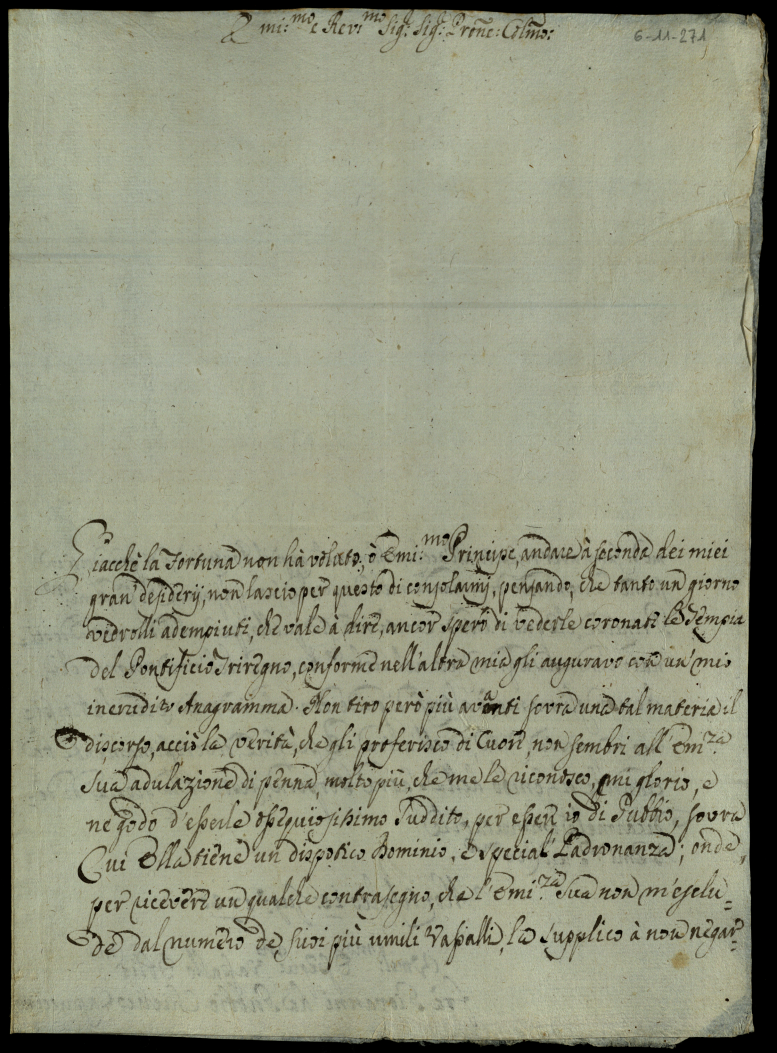 Emi:mo e Revmo Sig: Sig: Prone: Colmo:
6-11-271
Giacchè la Fortuna non hà voluto, ò Emi:mo Principe, andare à seconda dei miei
gran desiderij, non lascio per questo di consolarmi, pensando, che tanto un giorno
vedrolli adempiuti, che vale à dire, ancor spero di vederle coronate le Tempia
del Pontificio Triregno, conforme nell'altra mia gli auguravo con un' mio
inerudito Anagramma. Non tiro però più avanti sovra una tal materia il
discorso, acciò la verità, che gli proferisco di Cuore, non sembri all' Em:za
Sua adulazione di penna, molto più, che me le riconosco, mi glorio, e
ne godo d'esserle ossequiosissimo Suddito, per esser io di Gubbio, sovra
Cui Ella tiene un dispotico Dominio, e special' Padronanza; onde
per ricevere un qualche contrasegno, che l'Emi:za Sua non m'esclu=
de dal numero de suoi più umili Vassalli, la supplico à non negar=